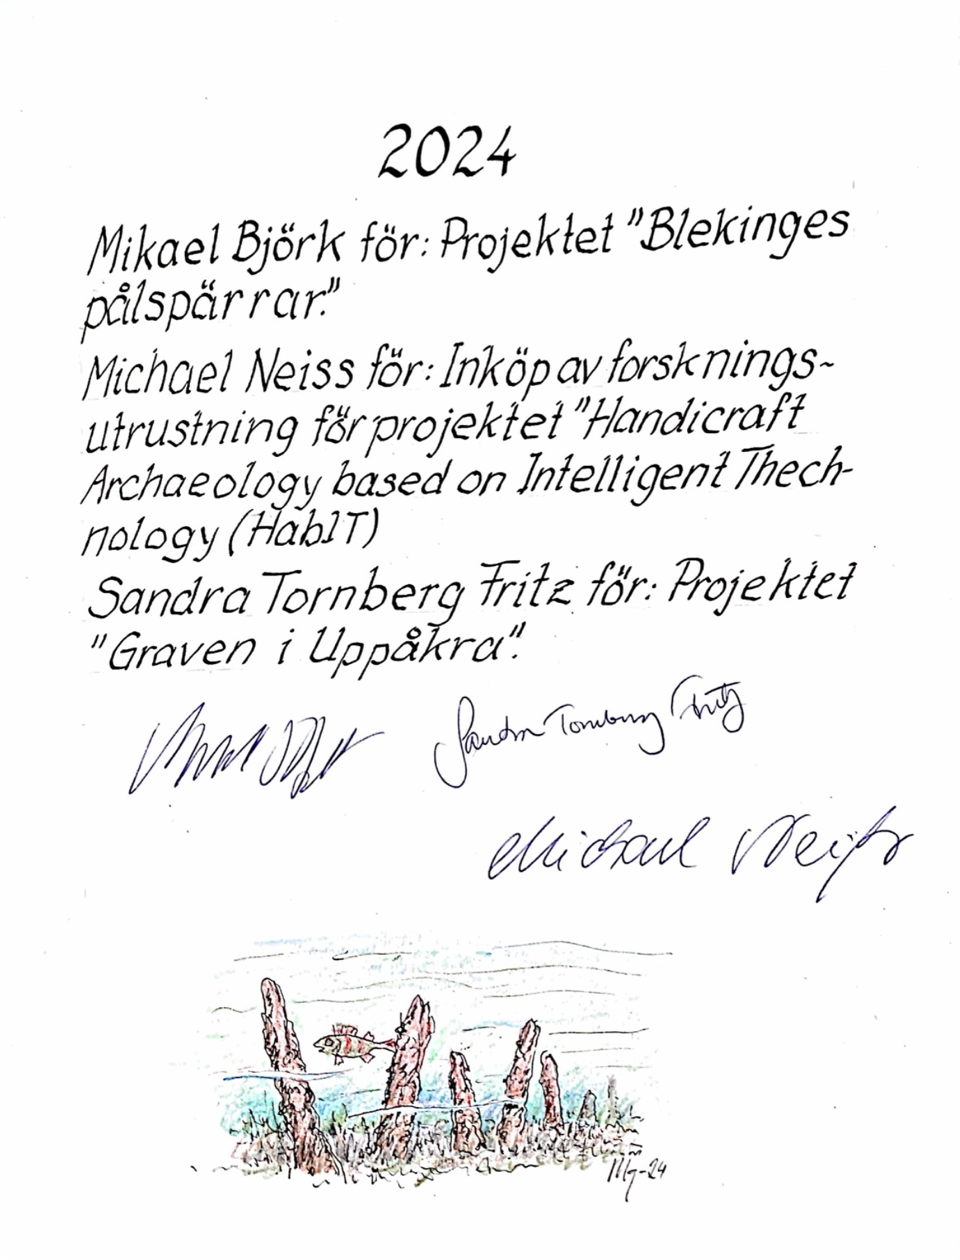 2024
Mikael Björk för: Projektet "Blekinges
pålspärrar."
Michael Neiss för: Inköp av forsknings-
utrustning för projektet "Handicraft
Archaeology based on Intelligent Thech-
nology (HabIT)
Sandra Tornberg Fritz för: Projektet
"Graven i Uppåkra".
Sandra Tornberg Fritz
Michael Neiß